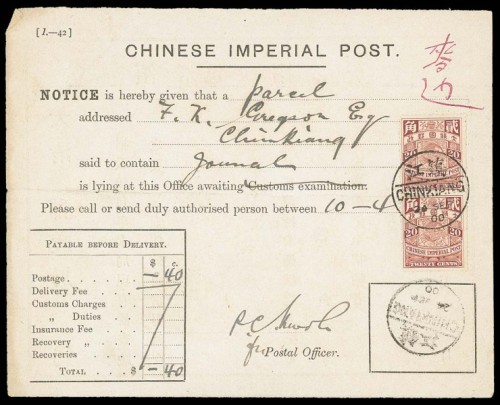 [I.—42]
CHINESE IMPERIAL POST.
NOTICE is hereby given that a parcel
addressed F. K. Gregson Esq
Chinkiang
said to contain Journal
is lying at this Office awaiting Customs examination.
Please call or send duly authorised person between 10 - 4
角貳
20 20
角貳
20 20
CHINESE IMPERIAL POST
TWENTY CENTS
CHINKIANG
24 SEP
00
PAYABLE BEFORE DELIVERY.
$ c.
Postage - 40
Delivery Fee
Customs Charges
„ Duties
Insurance Fee
Recovery „
Recoveries
TOTAL $ - 40
for Postal Officer.
CHINKIANG
24 SEP
00